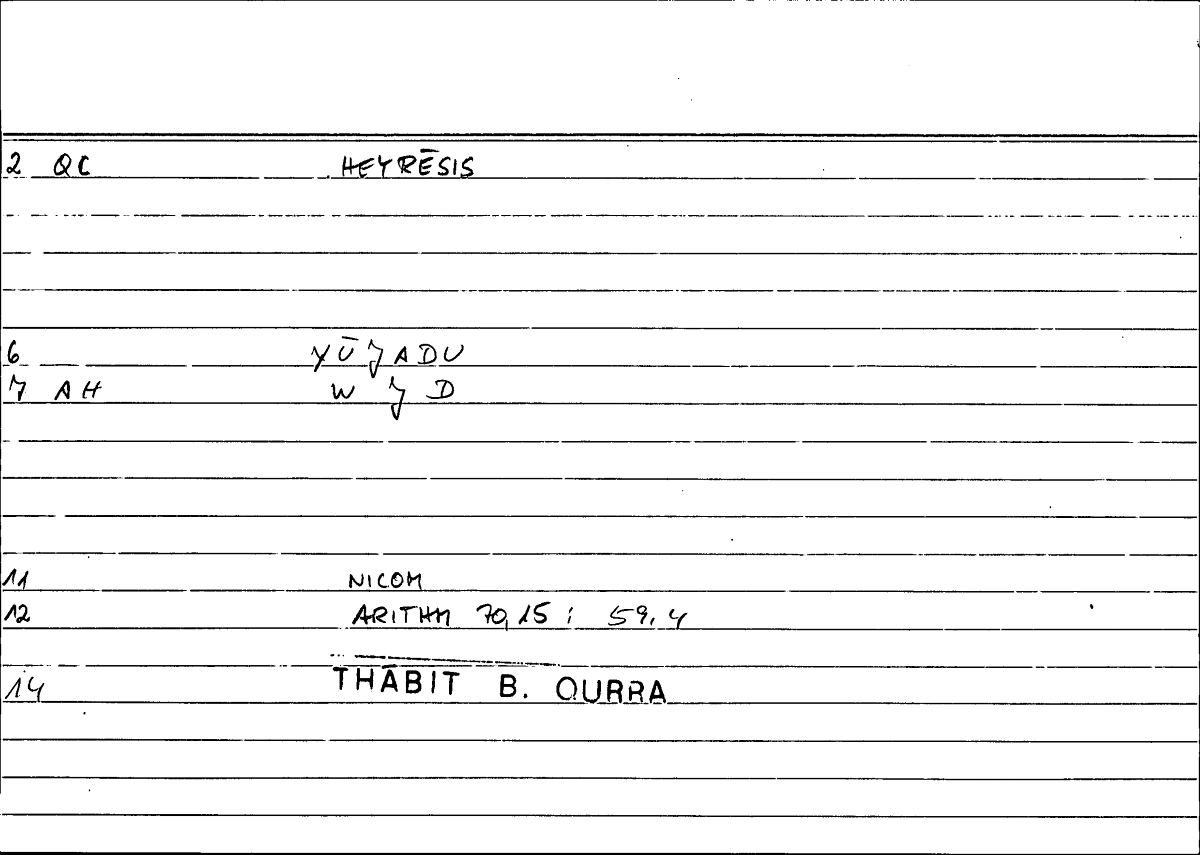 2 QC HEYRĒSIS
6 YŪJADU
7 AH W J D
11 NICOM
12 ARITHM 70,15 ; 59,4
14 THĀBIT B. QURRA